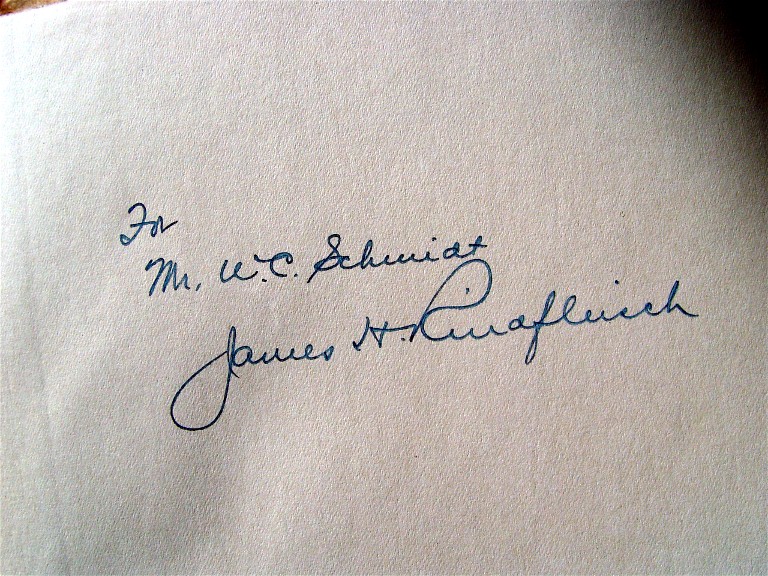 For
Mr. W.C. Schmidt
James H. Rindfleisch